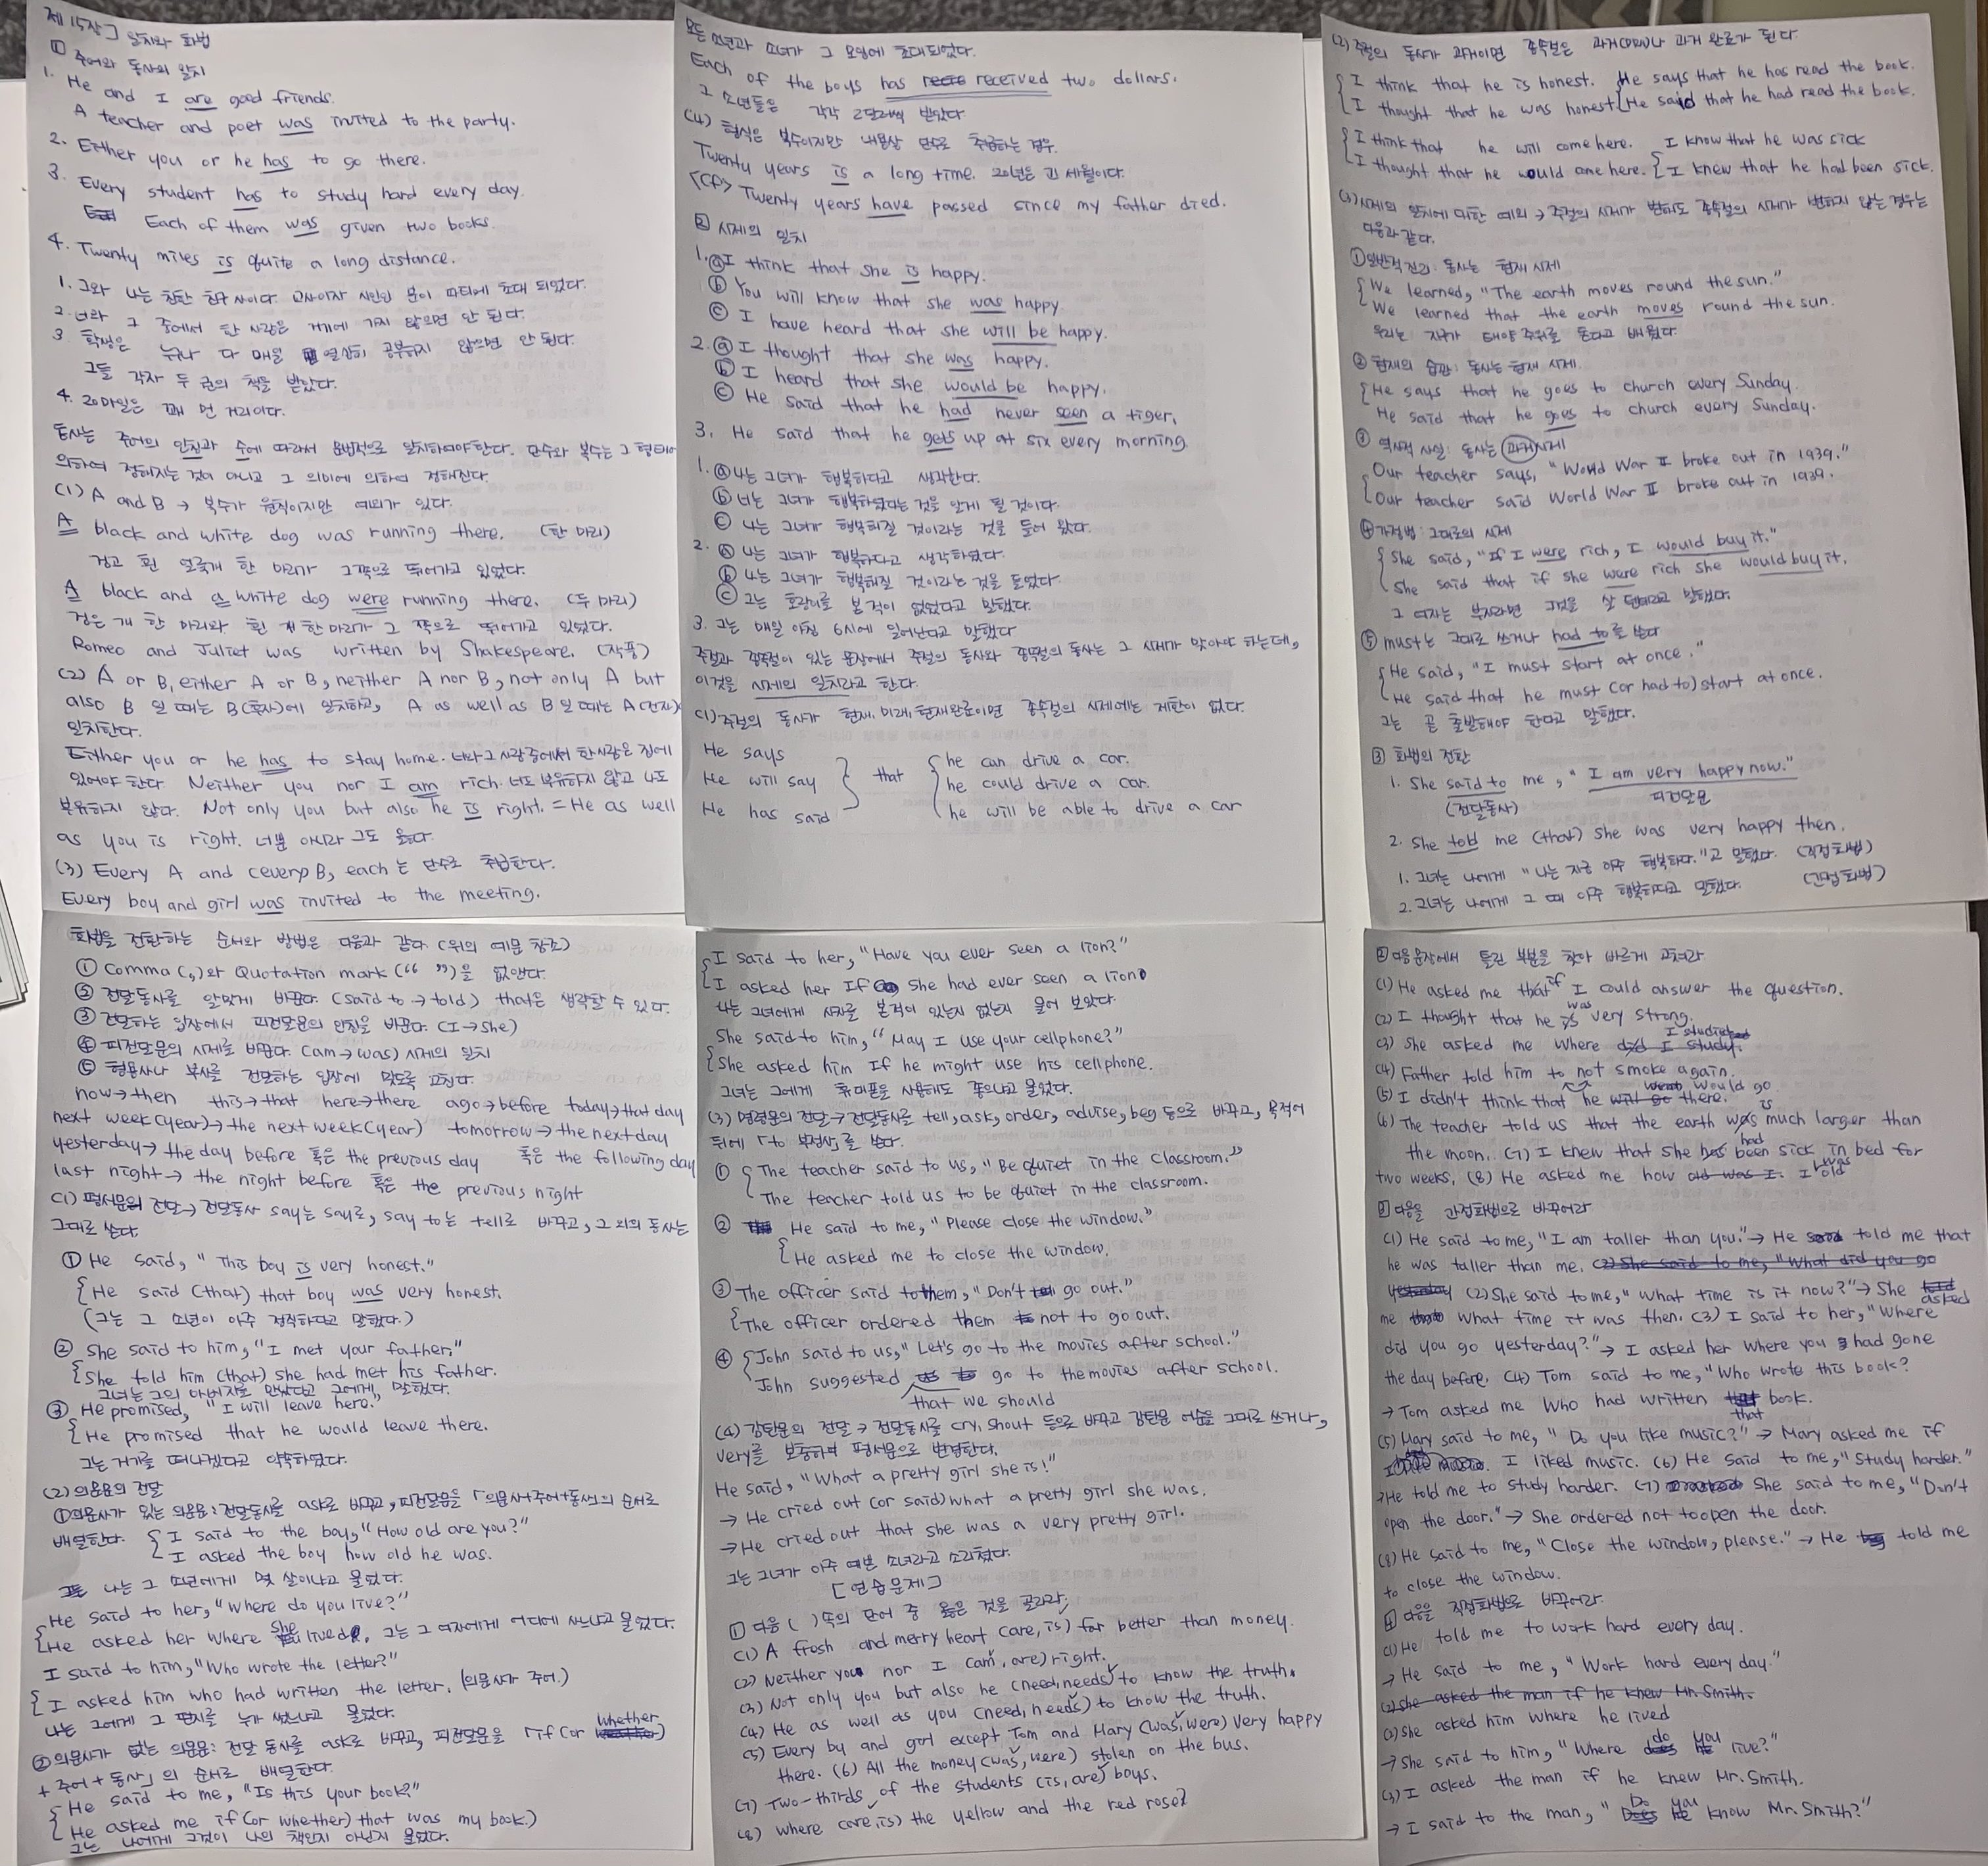 제 15장] 일치와 화법
① 주어와 동사의 일치
1. He and I are good friends.
A teacher and poet was invited to the party.
2. Either you or he has to go there.
3. Every student has to study hard every day.
Each of them was given two books.
4. Twenty miles is quite a long distance.
1. 그와 나는 친한 친구 사이다. 교사이자 시인인 분이 파티에 초대 되었다.
2. 너와 그 중에서 한 사람은 거기에 가지 않으면 안 된다.
3 학생은 누구나 다 매일 열심히 공부하지 않으면 안 된다.
그들 각자 두 권의 책을 받았다.
4. 20마일은 꽤 먼 거리이다.
동사는 주어의 인칭과 수에 따라서 문법적으로 일치하여야 한다. 단수와 복수는 그 형태에
의하여 정해지는 것이 아니고 그 의미에 의하여 정해진다.
(1) A and B → 복수가 원칙이지만 예외가 있다.
A black and white dog was running there. (한 마리)
검고 흰 얼룩개 한 마리가 그쪽으로 뛰어가고 있었다.
A black and a white dog were running there. (두 마리)
검은 개 한 마리와 흰 개 한 마리가 그 쪽으로 뛰어가고 있었다.
Romeo and Juliet was written by Shakespeare. (작품)
(2) A or B, either A or B, neither A nor B, not only A but
also B 일 때는 B(후자)에 일치하고, A as well as B 일 때는 A(전자)
일치한다.
Either you or he has to stay home. 너와 그 사람 중에서 한 사람은 집에
있어야 한다 Neither you nor I am rich. 너도 부유하지 않고 나도
부유하지 않다. Not only you but also he is right. = He as well
as you is right. 너뿐 아니라 그도 옳다.
(3) Every A and (every) B, each 는 단수로 취급한다.
Every boy and girl was invited to the meeting.
모든 소년과 소녀가 그 모임에 초대되었다.
Each of the boys has received two dollars.
그 소년들은 각각 2달러씩 받았다
(4) 형식은 복수이지만 내용상 단수로 취급하는 경우.
Twenty years is a long time. 20년은 긴 세월이다.
<Cf> Twenty years have passed since my father died.
② 시제의 일치
1. ⓐ I think that she is happy.
ⓑ You will know that she was happy
ⓒ I have heard that she will be happy.
2. ⓐ I thought that she was happy.
ⓑ I heard that she would be happy.
ⓒ He said that he had never seen a tiger.
3. He said that he gets up at six every morning.
1. ⓐ 나는 그녀가 행복하다고 생각한다.
ⓑ 너는 그녀가 행복하였다는 것을 알게 될 것이다.
ⓒ 나는 그녀가 행복해질 것이라는 것을 들어 왔다.
2. ⓐ 나는 그녀가 행복하다고 생각하였다.
ⓑ 나는 그녀가 행복해질 것이라는 것을 들었다.
ⓒ 그는 호랑이를 본 적이 없었다고 말했다.
3. 그는 매일 아침 6시에 일어난다고 말했다
주절과 종속절이 있는 문장에서 주절의 동사와 종속절의 동사는 그 시제가 맞아야 하는데,
이것을 시제의 일치라고 한다.
(1) 주절의 동사가 현재, 미래, 현재완료이면 종속절의 시제에는 제한이 없다.
He says
He will say
He has said
that
he can drive a car.
he could drive a car.
he will be able to drive a car
(2) 주절의 동사가 과거이면 종속절은 과거(would)나 과거 완료가 된다
I think that he is honest. He says that he has read the book.
I thought that he was honest He said that he had read the book.
I think that he will come here. I know that he was sick
I thought that he would come here. I knew that he had been sick.
(3) 시제의 일치에 대한 예외 → 주절의 시제가 변해도 종속절의 시제가 변하지 않는 경우는
다음과 같다.
① 일반적 진리: 동사는 현재 시제
We learned, "The earth moves round the sun."
We learned that the earth moves round the sun.
우리는 지구가 태양 주위를 돈다고 배웠다.
② 현재의 습관: 동사는 현재 시제.
He says that he goes to church every Sunday.
He said that he goes to church every Sunday.
③ 역사적 사실: 동사는 과거시제
Our teacher says, "World War II broke out in 1939."
Our teacher said World War II broke out in 1939.
④ 가정법: 그대로의 시제
She said, "If I were rich, I would buy it."
She said that if she were rich she would buy it.
그 여자는 부자라면 그것을 살 텐데라고 말했다.
⑤ must는 그대로 쓰거나 had to를 쓴다
He said, "I must start at once."
He said that he must (or had to) start at once.
그는 곧 출발해야 한다고 말했다.
③ 화법의 전환
1. She said to me, "I am very happy now."
(전달동사) 피전달문
2. She told me (that) she was very happy then.
1. 그녀는 나에게 "나는 지금 아주 행복하다."고 말했다. (직접화법)
2. 그녀는 나에게 그 때 아주 행복하다고 말했다. (간접화법)
화법을 전환하는 순서와 방법은 다음과 같다 (위의 예문 참조)
① Comma (,)와 Quotation mark (" ")을 없앤다.
② 전달동사를 알맞게 바꾼다. (said to → told) that은 생략할 수 있다.
③ 전달하는 입장에서 피전달문의 인칭을 바꾼다. (I → She)
④ 피전달문의 시제를 바꾼다. (am → was) 시제의 일치
⑤ 형용사나 부사를 전달하는 입장에 맞도록 고친다.
now → then this → that here → there ago → before today → that day
next week (year) → the next week (year) tomorrow → the next day
yesterday → the day before 혹은 the previous day 혹은 the following day
last night → the night before 혹은 the previous night
(1) 평서문의 전달 → 전달동사 say는 say로, say to는 tell로 바꾸고, 그 외의 동사는
그대로 쓴다.
① He said, "This boy is very honest."
He said (that) that boy was very honest.
(그는 그 소년이 아주 정직하다고 말했다.)
② She said to him, "I met your father."
She told him (that) she had met his father.
그녀는 그의 아버지를 만났다고 그에게 말했다.
③ He promised, "I will leave here."
He promised that he would leave there.
그는 거기를 떠나겠다고 약속하였다.
(2) 의문문의 전달
① 의문사가 있는 의문문: 전달동사를 ask로 바꾸고, 피전달문을 「의문사+주어+동사」의 순서로
배열한다. I said to the boy, "How old are you?"
I asked the boy how old he was.
나는 그 소년에게 몇 살이냐고 물었다.
He said to her, "Where do you live?"
He asked her where she lived. 그는 그 여자에게 어디에 사느냐고 물었다.
I said to him, "Who wrote the letter?"
I asked him who had written the letter. (의문사가 주어.)
나는 그에게 그 편지를 누가 썼느냐고 물었다.
② 의문사가 없는 의문문: 전달 동사를 ask로 바꾸고, 피전달문을 「if (or whether)
+ 주어 + 동사」의 순서로 배열한다.
He said to me, "Is this your book?"
He asked me if (or whether) that was my book.)
그는 나에게 그것이 나의 책인지 아닌지 물었다.
I said to her, "Have you ever seen a lion?"
I asked her If she had ever seen a lion
나는 그녀에게 사자를 본적이 있는지 없는지 물어 보았다.
She said to him, "May I use your cellphone?"
She asked him If he might use his cellphone.
그녀는 그에게 휴대폰을 사용해도 좋으냐고 물었다.
(3) 명령문의 전달 → 전달동사를 tell, ask, order, advise, beg 등으로 바꾸고, 목적어
뒤에 「to 부정사」를 쓴다.
① The teacher said to us, "Be quiet in the classroom."
The teacher told us to be quiet in the classroom.
② He said to me, "Please close the window."
He asked me to close the window.
③ The officer said to them, "Don't go out."
The officer ordered them not to go out.
④ John said to us, "Let's go to the movies after school."
John suggested that we should go to the movies after school.
(4) 감탄문의 전달 → 전달동사를 cry, shout 등으로 바꾸고 감탄문 어순을 그대로 쓰거나,
very를 보충하여 평서문으로 변경한다.
He said, "What a pretty girl she is!"
→ He cried out (or said) what a pretty girl she was.
→ He cried out that she was a very pretty girl.
그는 그녀가 아주 예쁜 소녀라고 소리쳤다.
[연습문제]
① 다음 ( ) 속의 단어 중 옳은 것을 골라라.
(1) A fresh and merry heart (are, is) far better than money.
(2) Neither you nor I (am, are) right.
(3) Not only you but also he (need, needs) to know the truth.
(4) He as well as you (need, needs) to know the truth.
(5) Every by and girl except Tom and Mary (was, were) very happy
there. (6) All the money (was, were) stolen on the bus.
(7) Two-thirds of the students (is, are) boys.
(8) where (are, is) the yellow and the red rose?
② 다음 문장에서 틀린 부분을 찾아 바르게 고쳐라
(1) He asked me that if I could answer the question.
(2) I thought that he is was very strong.
(3) She asked me where did I study. I studied
(4) Father told him to not smoke again.
(5) I didn't think that he will go there. would go
(6) The teacher told us that the earth was is much larger than
the moon. (7) I knew that she has had been sick in bed for
two weeks. (8) He asked me how old was I. I was old
③ 다음을 간접화법으로 바꾸어라
(1) He said to me, "I am taller than you." → He told me that
he was taller than me. (2) She said to me, "What did you go
yesterday (2) She said to me, "What time is it now?" → She asked
me what time it was then. (3) I said to her, "Where
did you go yesterday?" → I asked her where you had gone
the day before. (4) Tom said to me, "Who wrote this book?
→ Tom asked me Who had written that book.
(5) Mary said to me, "Do you like music?" → Mary asked me if
I liked music. (6) He said to me, "Study harder."
→ He told me to study harder. (7) She said to me, "Don't
open the door." → She ordered not to open the door.
(8) He said to me, "Close the window, please." → He told me
to close the window.
④ 다음을 직접화법으로 바꾸어라.
(1) He told me to work hard every day.
→ He said to me, "Work hard every day."
(2) She asked the man if he knew Mr. Smith.
(2) She asked him where he lived
→ She said to him, "Where do you live?"
(3) I asked the man if he knew Mr. Smith.
→ I said to the man, "Do you know Mr. Smith?"